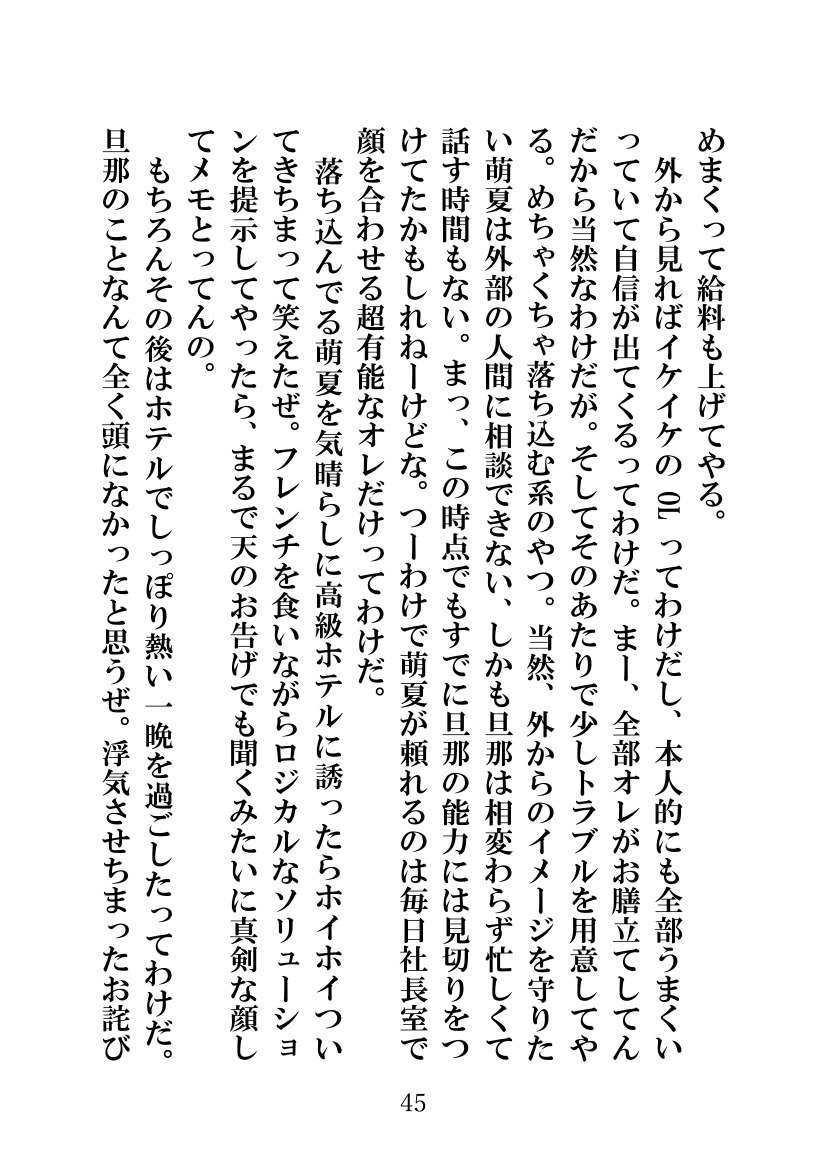 めまくって給料も上げてやる。
　外から見ればイケイケの OL ってわけだし、本人的にも全部うまくい
っていて自信が出てくるってわけだ。まー、全部オレがお膳立てしてん
だから当然なわけだが。そしてそのあたりで少しトラブルを用意してや
る。めちゃくちゃ落ち込む系のやつ。当然、外からのイメージを守りた
い萌夏は外部の人間に相談できない、しかも旦那は相変わらず忙しくて
話す時間もない。まっ、この時点でもすでに旦那の能力には見切りをつ
けてたかもしれねーけどな。つーわけで萌夏が頼れるのは毎日社長室で
顔を合わせる超有能なオレだけってわけだ。
　落ち込んでる萌夏を気晴らしに高級ホテルに誘ったらホイホイつい
てきちまって笑えたぜ。フレンチを食いながらロジカルなソリューショ
ンを提示してやったら、まるで天のお告げでも聞くみたいに真剣な顔し
てメモとってんの。
　もちろんその後はホテルでしっぽり熱い一晩を過ごしたってわけだ。
旦那のことなんて全く頭になかったと思うぜ。浮気させちまったお詫び
45